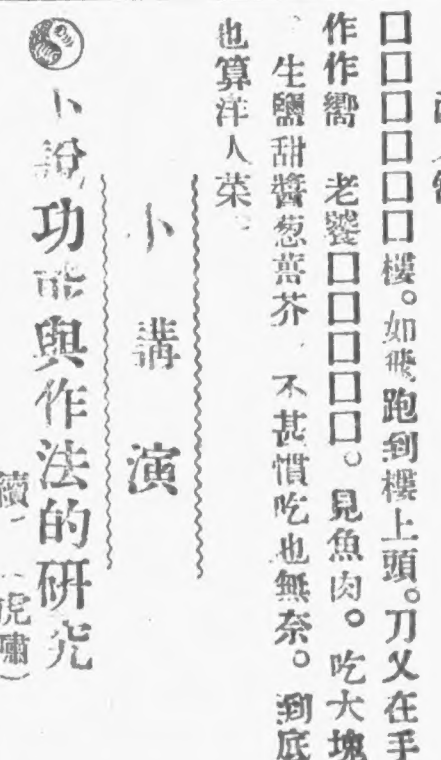 □□□□□□樓。如飛跑到樓上頭。刀叉在手
作作響 老饕□□□□□。見魚肉。吃大塊
、生鹽甜醬葱薑芥、不甚慣吃也無奈。到底
也算洋人菜。
小講演
小說功能與作法的研究
續、(虎嘯)